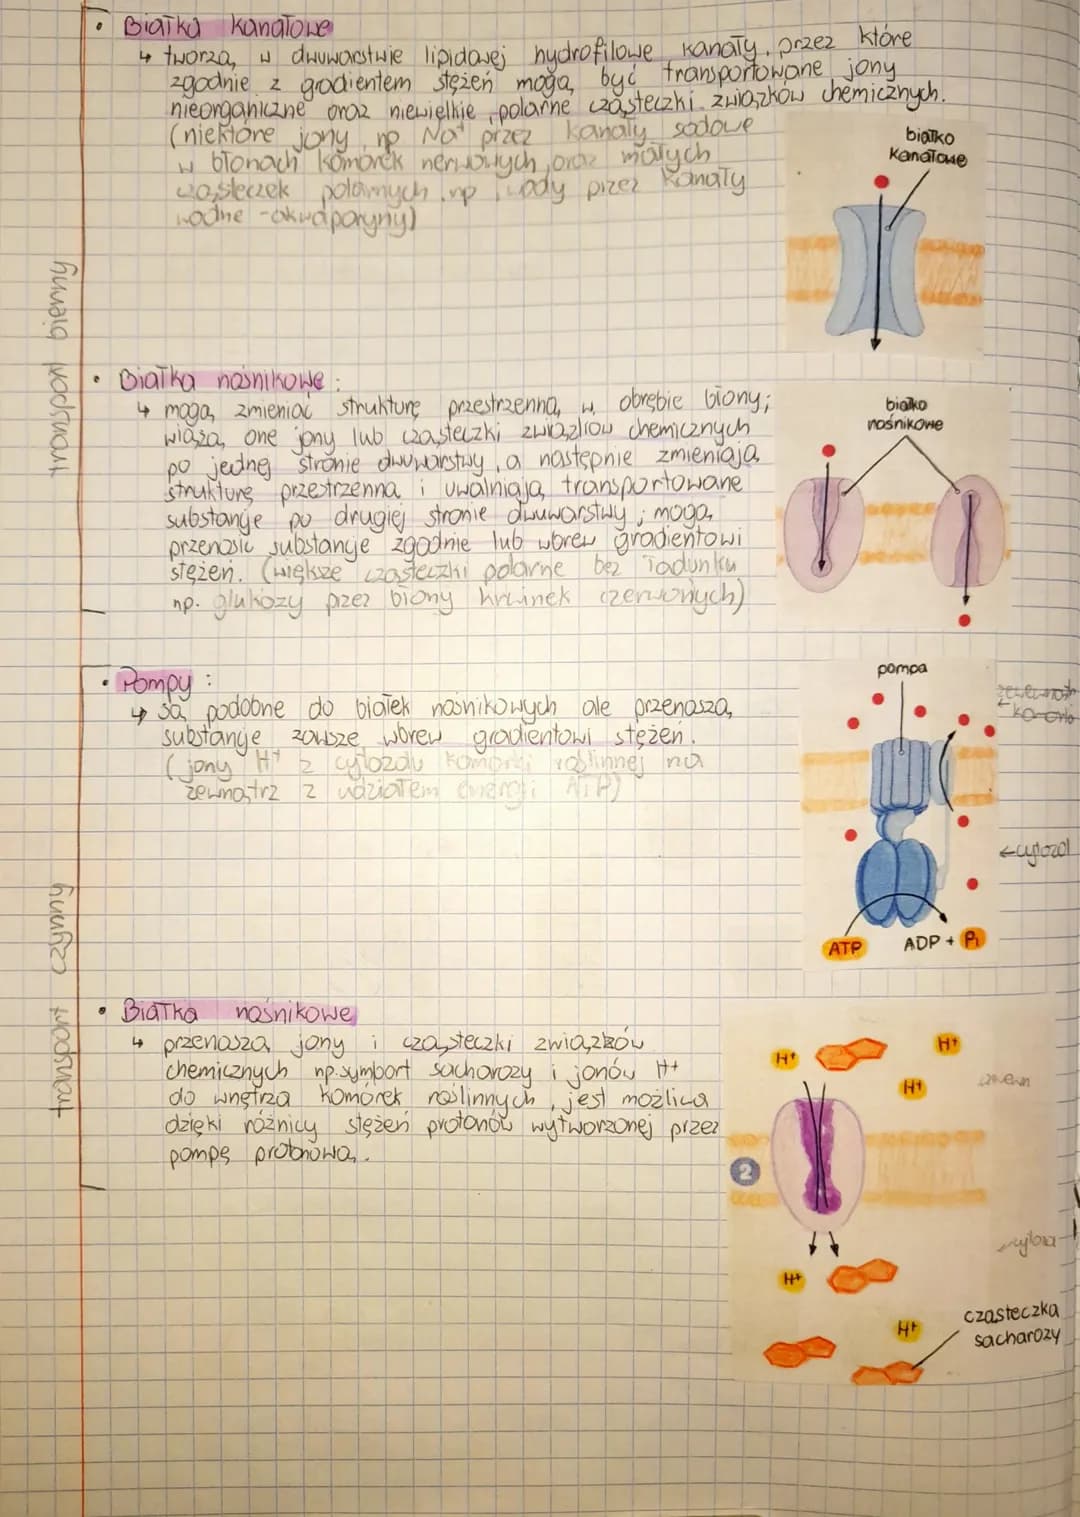 • Białka kanałowe
↳ tworzą w dwuwarstwie lipidowej hydrofilowe kanały, przez które
zgodnie z gradientem stężeń mogą być transportowane jony
nieorganiczne oraz niewielkie, polarne cząsteczki związków chemicznych.
(niektóre jony, np Na+ przez kanały sodowe
w błonach komórek nerwowych, oraz małych
cząsteczek polarnych np. wody przez kanały
wodne - akwaporyny)
białko
kanałowe
transport bierny
• Białka nośnikowe:
↳ mogą zmieniać strukturę przestrzenną w obrębie błony;
wiążą one jony lub cząsteczki związków chemicznych
po jednej stronie dwuwarstwy, a następnie zmieniają
strukturę przestrzenną i uwalniają transportowane
substancje po drugiej stronie dwuwarstwy; mogą
przenosić substancje zgodnie lub wbrew gradientowi
stężeń. (większe cząsteczki polarne bez ładunku
np. glukozy przez błony krwinek czerwonych)
białko
nośnikowe
• Pompy:
↳ są podobne do białek nośnikowych ale przenoszą
substancje zawsze wbrew gradientowi stężeń.
(jony H+ z cytozolu komórki roślinnej na
zewnątrz z udziałem energii ATP)
pompa
←cytozol
ATP
ADP + Pi
transport czynny
• Białka nośnikowe
↳ przenoszą jony i cząsteczki związków
chemicznych np. symport sacharozy i jonów H+
do wnętrza komórek roślinnych, jest możliwa
dzięki różnicy stężeń protonów wytworzonej przez
pompę protonową.
H+
H+
H+
2
H+
H+
cząsteczka
sacharozy